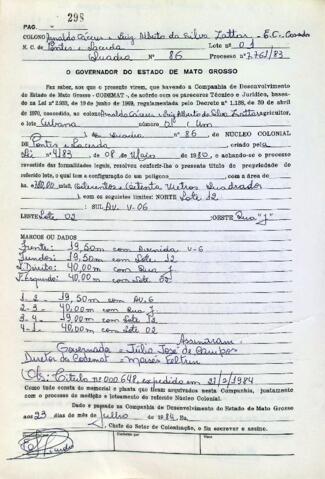 PAG. 298
COLONO Arnaldo Cáceres e Luiz Alberto da Silva Zattar - E.C. Casado
N. C. de Pontes e Lacerda Lote nº 01
Quadra nº 86 Processo nº 7.761/83
O GOVERNADOR DO ESTADO DE MATO GROSSO
Faz saber, aos que o presente virem, que havendo a Companhia de Desenvolvimento
do Estado de Mato Grosso - CODEMAT -, de acordo com os pareceres Técnico e Jurídico, basea-
do na Lei nº 2.933, de 19 de junho de 1969, regulamentada pelo Decreto nº 1.138, de 29 de abril
de 1970, concedido, ao colono Arnaldo Cáceres e Luiz Alberto da Silva Zattar, agricultor, o
lote Urbana número 01 (Um)
da Quadra nº 86, DE NÚCLEO COLONIAL
DE Pontes e Lacerda criado pela
Lei nº 4183 de 08 de Maio 1980, e achando-se o processo
revestido das formalidades legais, resolveu conferir-lhe o presente título de propriedade do
referido lote, o qual tem a configuração de um polígono com a área de
ha 780,00 m² (Setecentos e Oitenta Metros Quadrados
dentro dos seguintes limites: NORTE Lote 12
SUL Av. V-06
LESTE Lote 02 OESTE Rua "J"
MARCOS OU DADOS
Frente: 19,50m com Avenida V-6
Fundos: 19,50m com Lote 12
L Direito: 40,00m com Rua J
L Esquerdo: 40,00m com Lote 02
1-2 = 19,50m com AV. 6
2-3 = 40,00m com Rua J
3-4 = 19,00m com Lote 12
4-1 = 40,00m com Lote 02
Assinaram:
Governador - Júlio José de Campos
Diretor da Codemat - Moisés Feltrin
Obs: Título nº 000.648, expedido em 21/2/1984
Como tudo consta do memorial e planta que ficam arquivados nesta Companhia, juntamente
com o processo de medição e loteamento do referido Núcleo Colonial.
Dado e passado na Companhia de Desenvolvimento do Estado de Mato Grosso
aos 23 dias do mês de Julho de 1984. Eu
Chefe do Setor de Colonização, o fiz escrever e assino.